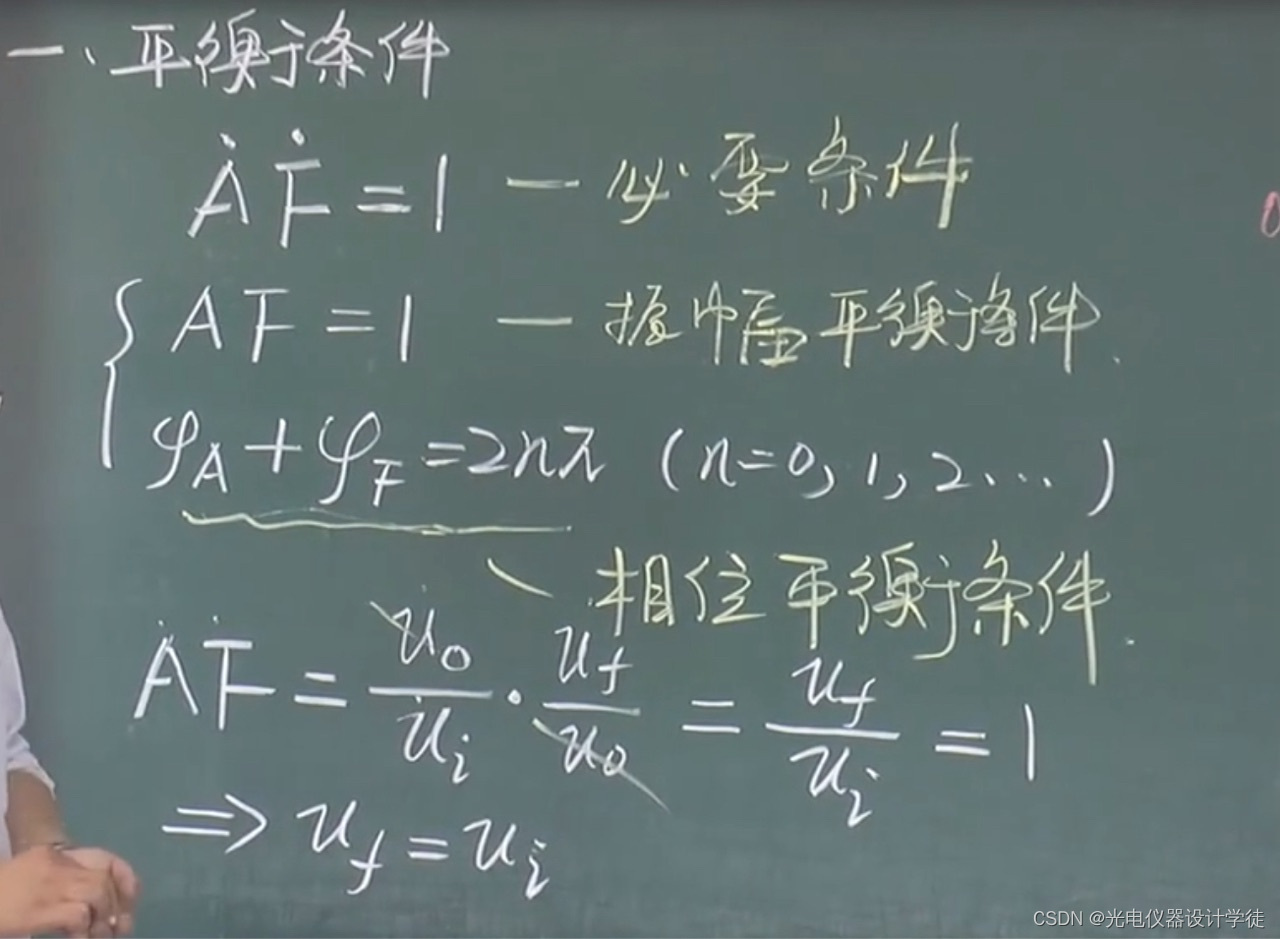 一、平衡条件
ȦḞ=1 — 必要条件
AF=1 — 振幅平衡条件.
φ_A+φ_F=2nπ (n=0,1,2...)
相位平衡条件.
ȦḞ = u̇_o/u̇_i · u_f/u_o = u_f/u_i = 1
⇒ u_f = u_i
CSDN @光电仪器设计学徒